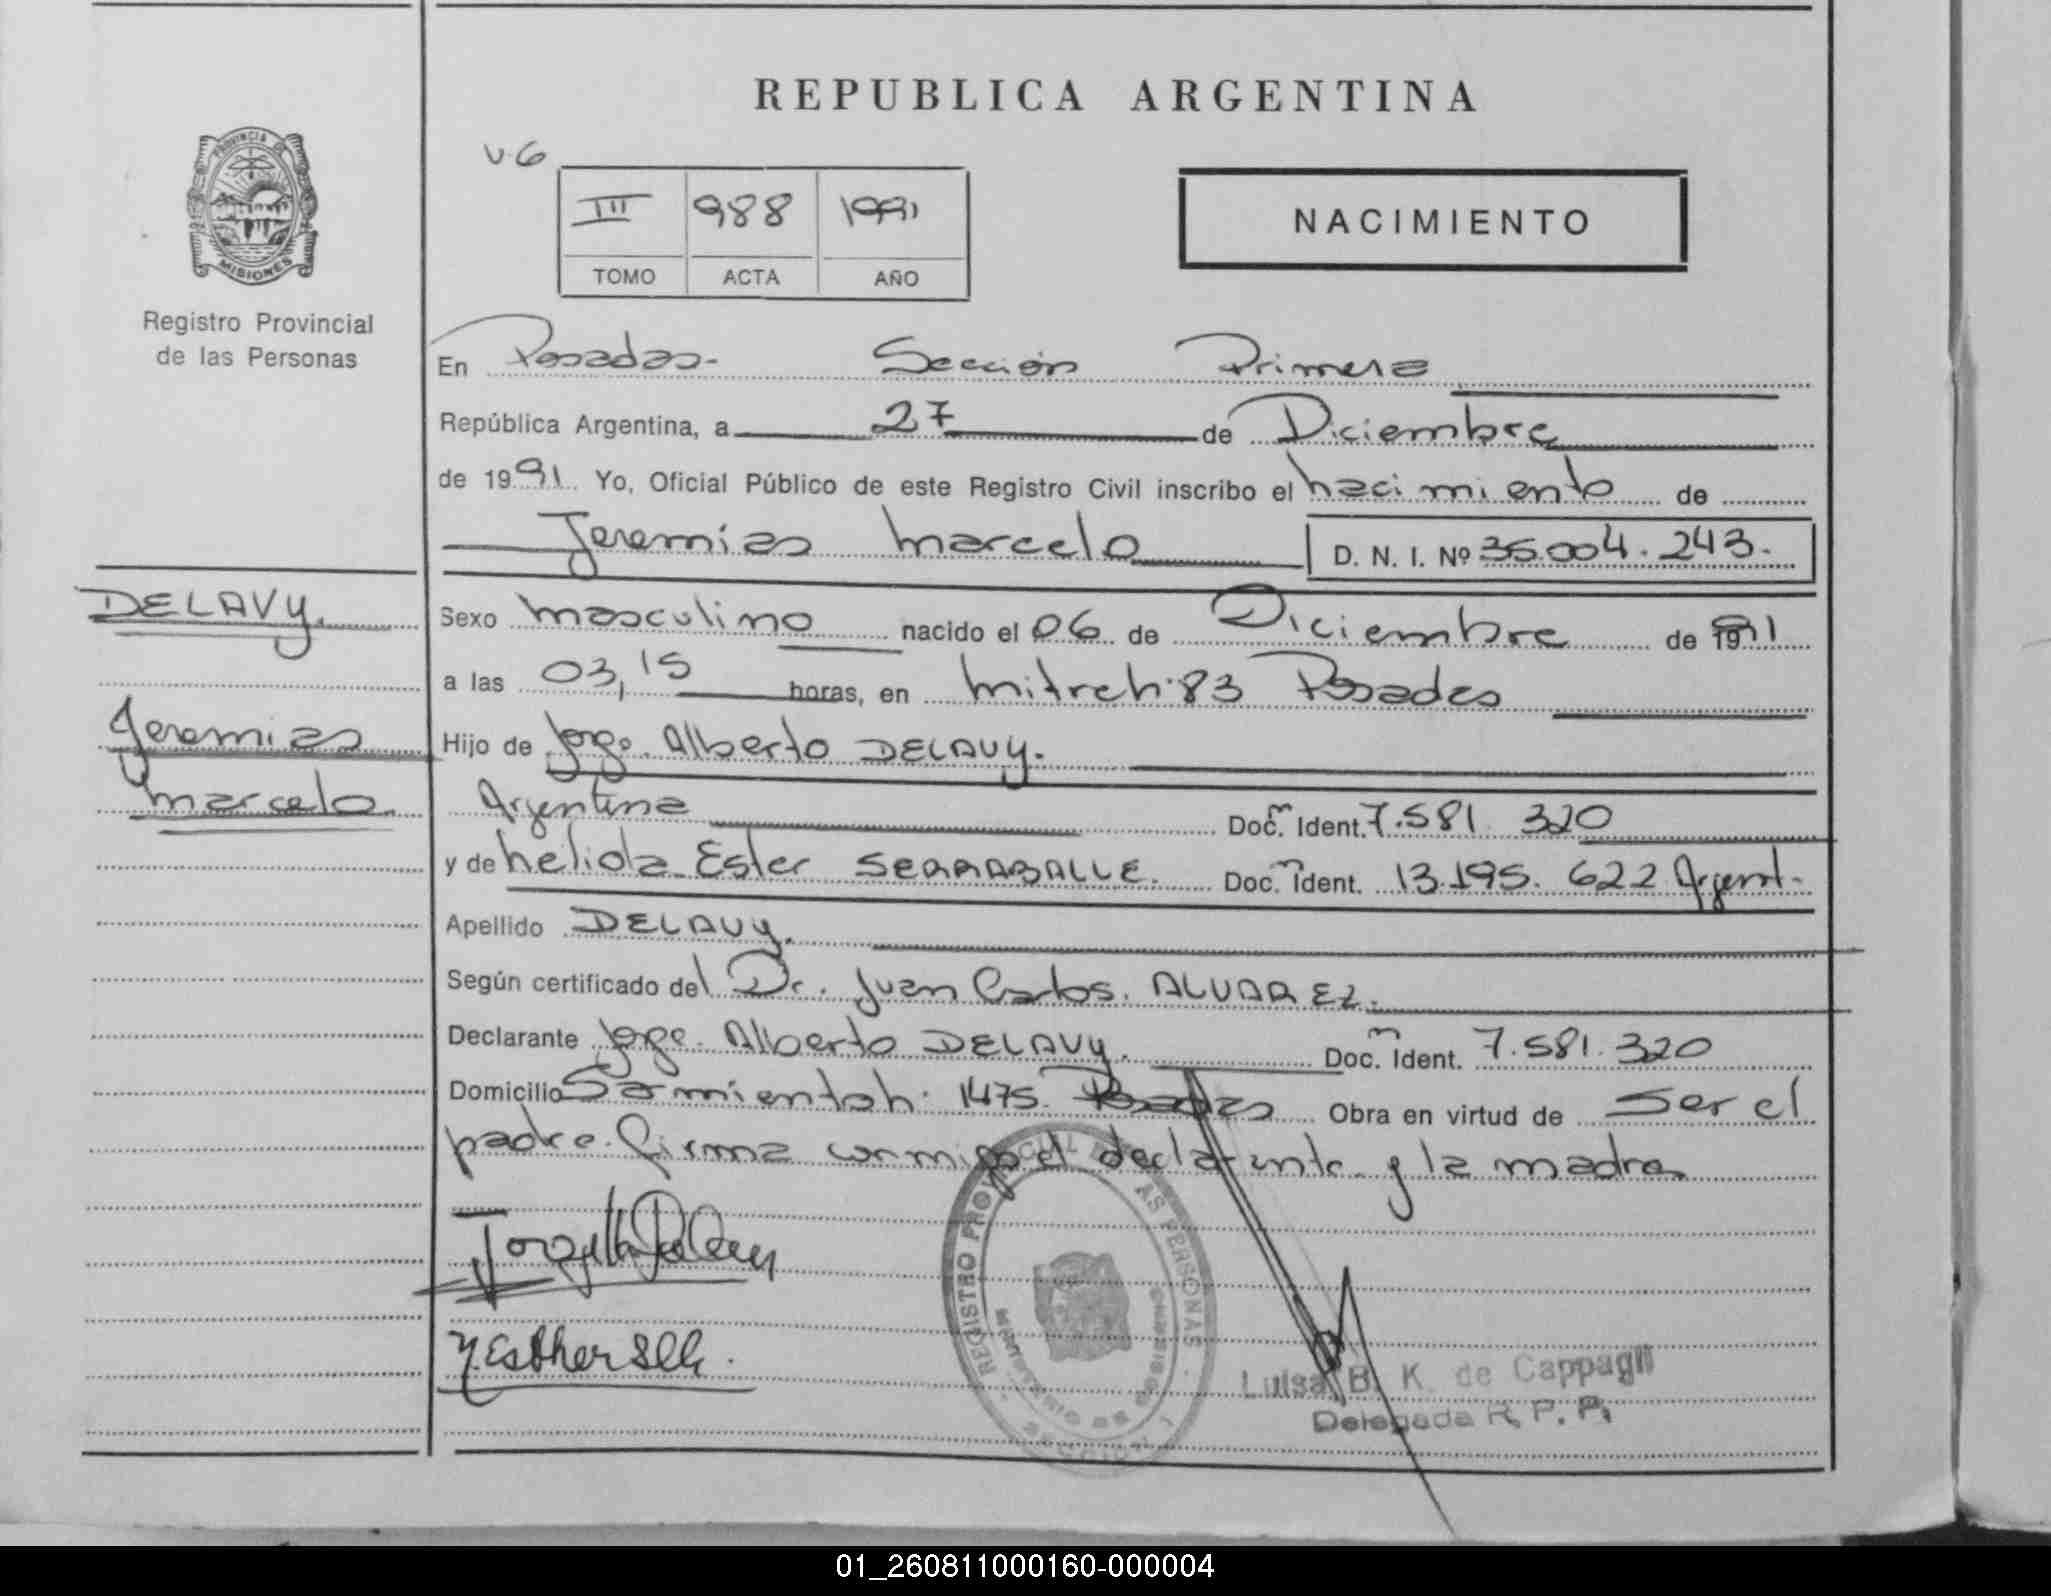 REPUBLICA ARGENTINA
PROVINCIA DE
MISIONES
Registro Provincial
de las Personas
V.6
III 988 1991
TOMO ACTA AÑO
NACIMIENTO
En Posadas- Sección Primera
República Argentina, a 27 de Diciembre
de 1991. Yo, Oficial Público de este Registro Civil inscribo el nacimiento de
Jeremías Marcelo D. N. I. Nº 36.004.243.
DELAVY.
Sexo Masculino nacido el 06 de Diciembre de 1991
a las 03,15 horas, en Mitre Nº 83 Posadas
Jeremias
Hijo de Jorge Alberto DELAVY.
Marcelo.
Argentina Doc. Ident. 7.581.320
y de Nélida Ester SERRABALLE. Doc. Ident. 13.195.622 Argent.
Apellido DELAVY.
Según certificado del Dr. Juan Carlos ALVAREZ.
Declarante Jorge Alberto DELAVY. Doc. Ident. 7.581.320
Domicilio Sarmiento Nº 1475 Posadas Obra en virtud de Ser el
padre. firma conmigo el declarante y la madre
REGISTRO PROVINCIAL DE LAS PERSONAS
N. Esther
Luisa B. K. de Cappagli
Delegada R. P. P.
01_260811000160-000004